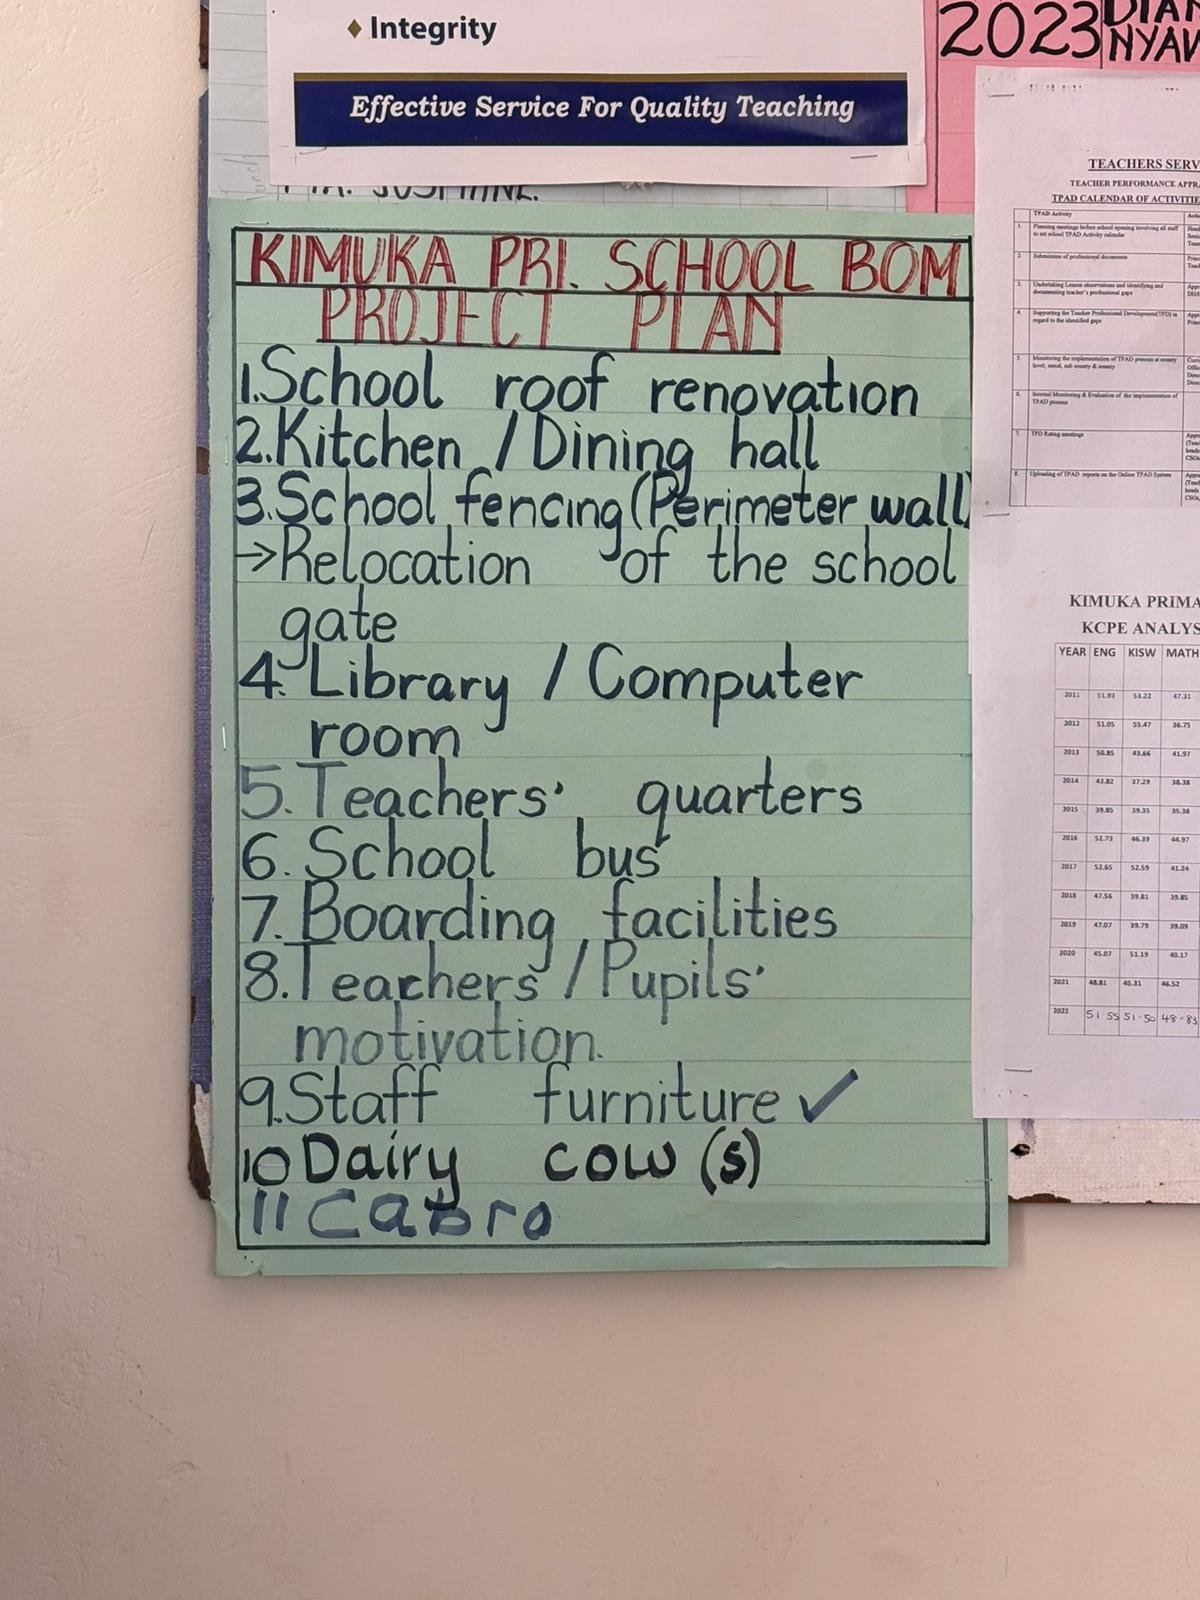 Integrity
Effective Service For Quality Teaching
2023
KIMUKA PRI. SCHOOL BOM
PROJECT PLAN
1. School roof renovation
2. Kitchen / Dining hall
3. School fencing (Perimeter wall)
→ Relocation of the school
gate
4. Library / Computer
room
5. Teachers' quarters
6. School bus
7. Boarding facilities
8. Teachers / Pupils'
motivation.
9. Staff furniture ✓
10 Dairy cow (s)
11 Cabro
TEACHERS SERV
TEACHER PERFORMANCE APPRA
TPAD CALENDAR OF ACTIVITIE
TPAD Activity
1. Planning meetings before school opening involving all staff
to set school TPAD Activity calendar
2. Submission of professional documents
3. Undertaking Lesson observations and identifying and
documenting teacher's professional gaps
4. Supporting the Teacher Professional Development(TPD) in
regard to the identified gaps
5. Monitoring the implementation of TPAD process at county
level; zonal, sub county & county
6. Internal Monitoring & Evaluation of the implementation of
TPAD process
7. TPD Rating meetings
8. Uploading of TPAD reports on the Online TPAD System
KIMUKA PRIMA
KCPE ANALYS
YEAR ENG KISW MATH
2011 51.93 53.22 47.31
2012 51.05 55.47 36.75
2013 50.85 43.66 41.97
2014 43.82 37.29 38.38
2015 39.85 39.35 35.38
2016 52.73 46.39 44.97
2017 52.65 52.59 41.24
2018 47.56 39.81 39.85
2019 47.07 39.79 39.09
2020 45.07 51.19 40.17
2021 48.81 45.31 46.52
2022 51.55 51.50 48.83